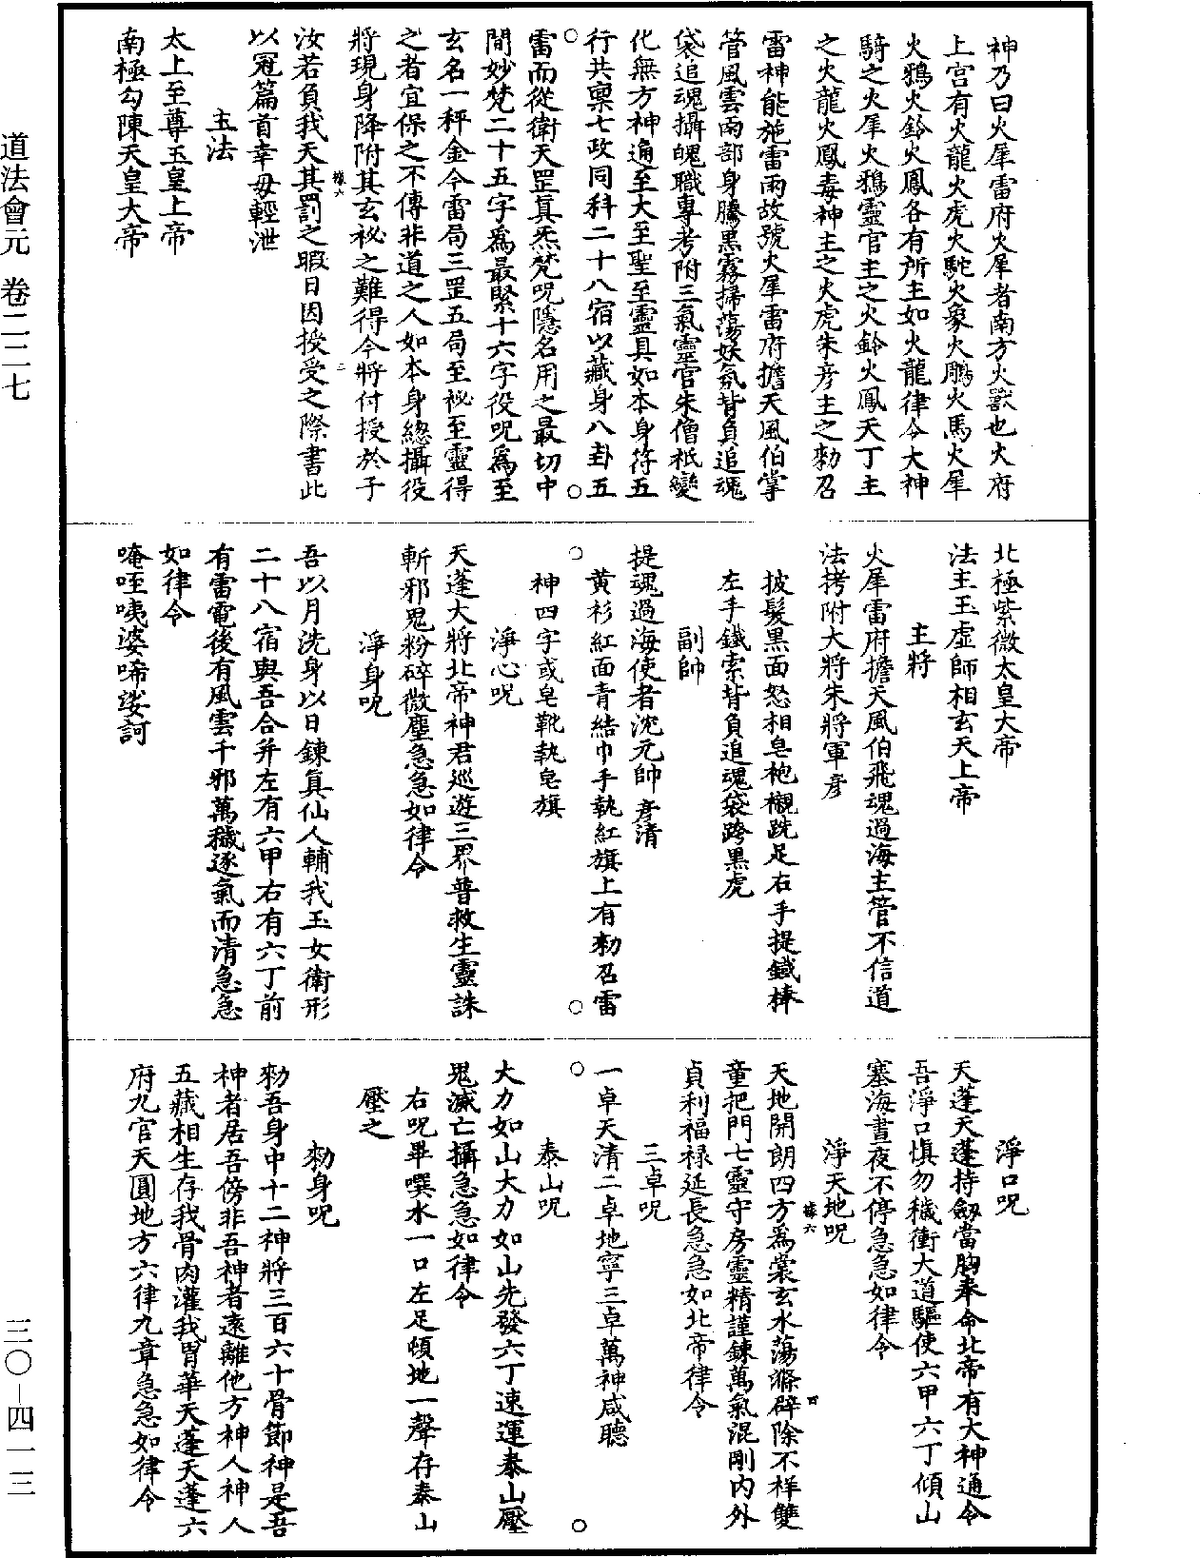 道法會元 卷二二七
三〇—四一三
神乃曰火犀雷府火犀者南方火獸也火府
上宮有火龍火虎火駝火象火鵰火馬火犀
火鴉火鈴火鳳各有所主如火龍律令大神
騎之火犀火鴉靈官主之火鈴火鳳天丁主
之火龍火鳳毒神主之火虎朱彥主之勑召
雷神能施雷雨故號火犀雷府擔天風伯掌
管風雲雨部身騰黑霧掃蕩妖氛背負追魂
袋追魂攝魄職專考附三氣靈官朱僧祇變
化無方神通至大至聖至靈具如本身符五
行共稟七政同科二十八宿以藏身八卦五
雷而從衛天罡真炁梵呪隱名用之最切中
間妙梵二十五字爲最緊十六字役呪爲至
玄名一秤金今雷局三罡五局至祕至靈得
之者宜保之不傳非道之人如本身總攝役
將現身降附其玄祕之難得今將付授於子
汝若負我天其罰之暇日因授受之際書此
以冠篇首幸毋輕泄
主法
太上至尊玉皇上帝
南極勾陳天皇大帝
北極紫微太皇大帝
法主玉虛師相玄天上帝
主將
火犀雷府擔天風伯飛魂過海主管不信道
法拷附大將朱將軍彥
披髮黑面怒相皂袍襯跣足右手提鐵棒
左手鐵索背負追魂袋跨黑虎
副帥
提魂過海使者沈元帥彥清
黃衫紅面青結巾手執紅旗上有勑召雷
神四字或皂靴執皂旗
淨心呪
天蓬大將北帝神君巡遊三界普救生靈誅
斬邪鬼粉碎微塵急急如律令
淨身呪
吾以月洗身以日鍊真仙人輔我玉女衛形
二十八宿與吾合并左有六甲右有六丁前
有雷電後有風雲千邪萬穢逐氣而清急急
如律令
唵㗌咦婆唏娑訶
淨口呪
天蓬天蓬持劒當胸奉命北帝有大神通令
吾淨口慎勿穢衝大道驅使六甲六丁傾山
塞海晝夜不停急急如律令
淨天地呪
天地開朗四方爲裳玄水蕩滌辟除不祥雙
童把門七靈守房靈精謹鍊萬氣混剛內外
貞利福祿延長急急如北帝律令
三卓呪
一卓天清二卓地寧三卓萬神咸聽
泰山呪
大力如山大力如山先發六丁速運泰山壓
鬼滅亡攝急急如律令
右呪畢噀水一口左足頓地一聲存泰山
壓之
勑身呪
勑吾身中十二神將三百六十骨節神是吾
神者居吾傍非吾神者遠離他方神人神人
五藏相生存我骨肉灌我胃華天蓬天蓬六
府九官天圓地方六律九章急急如律令